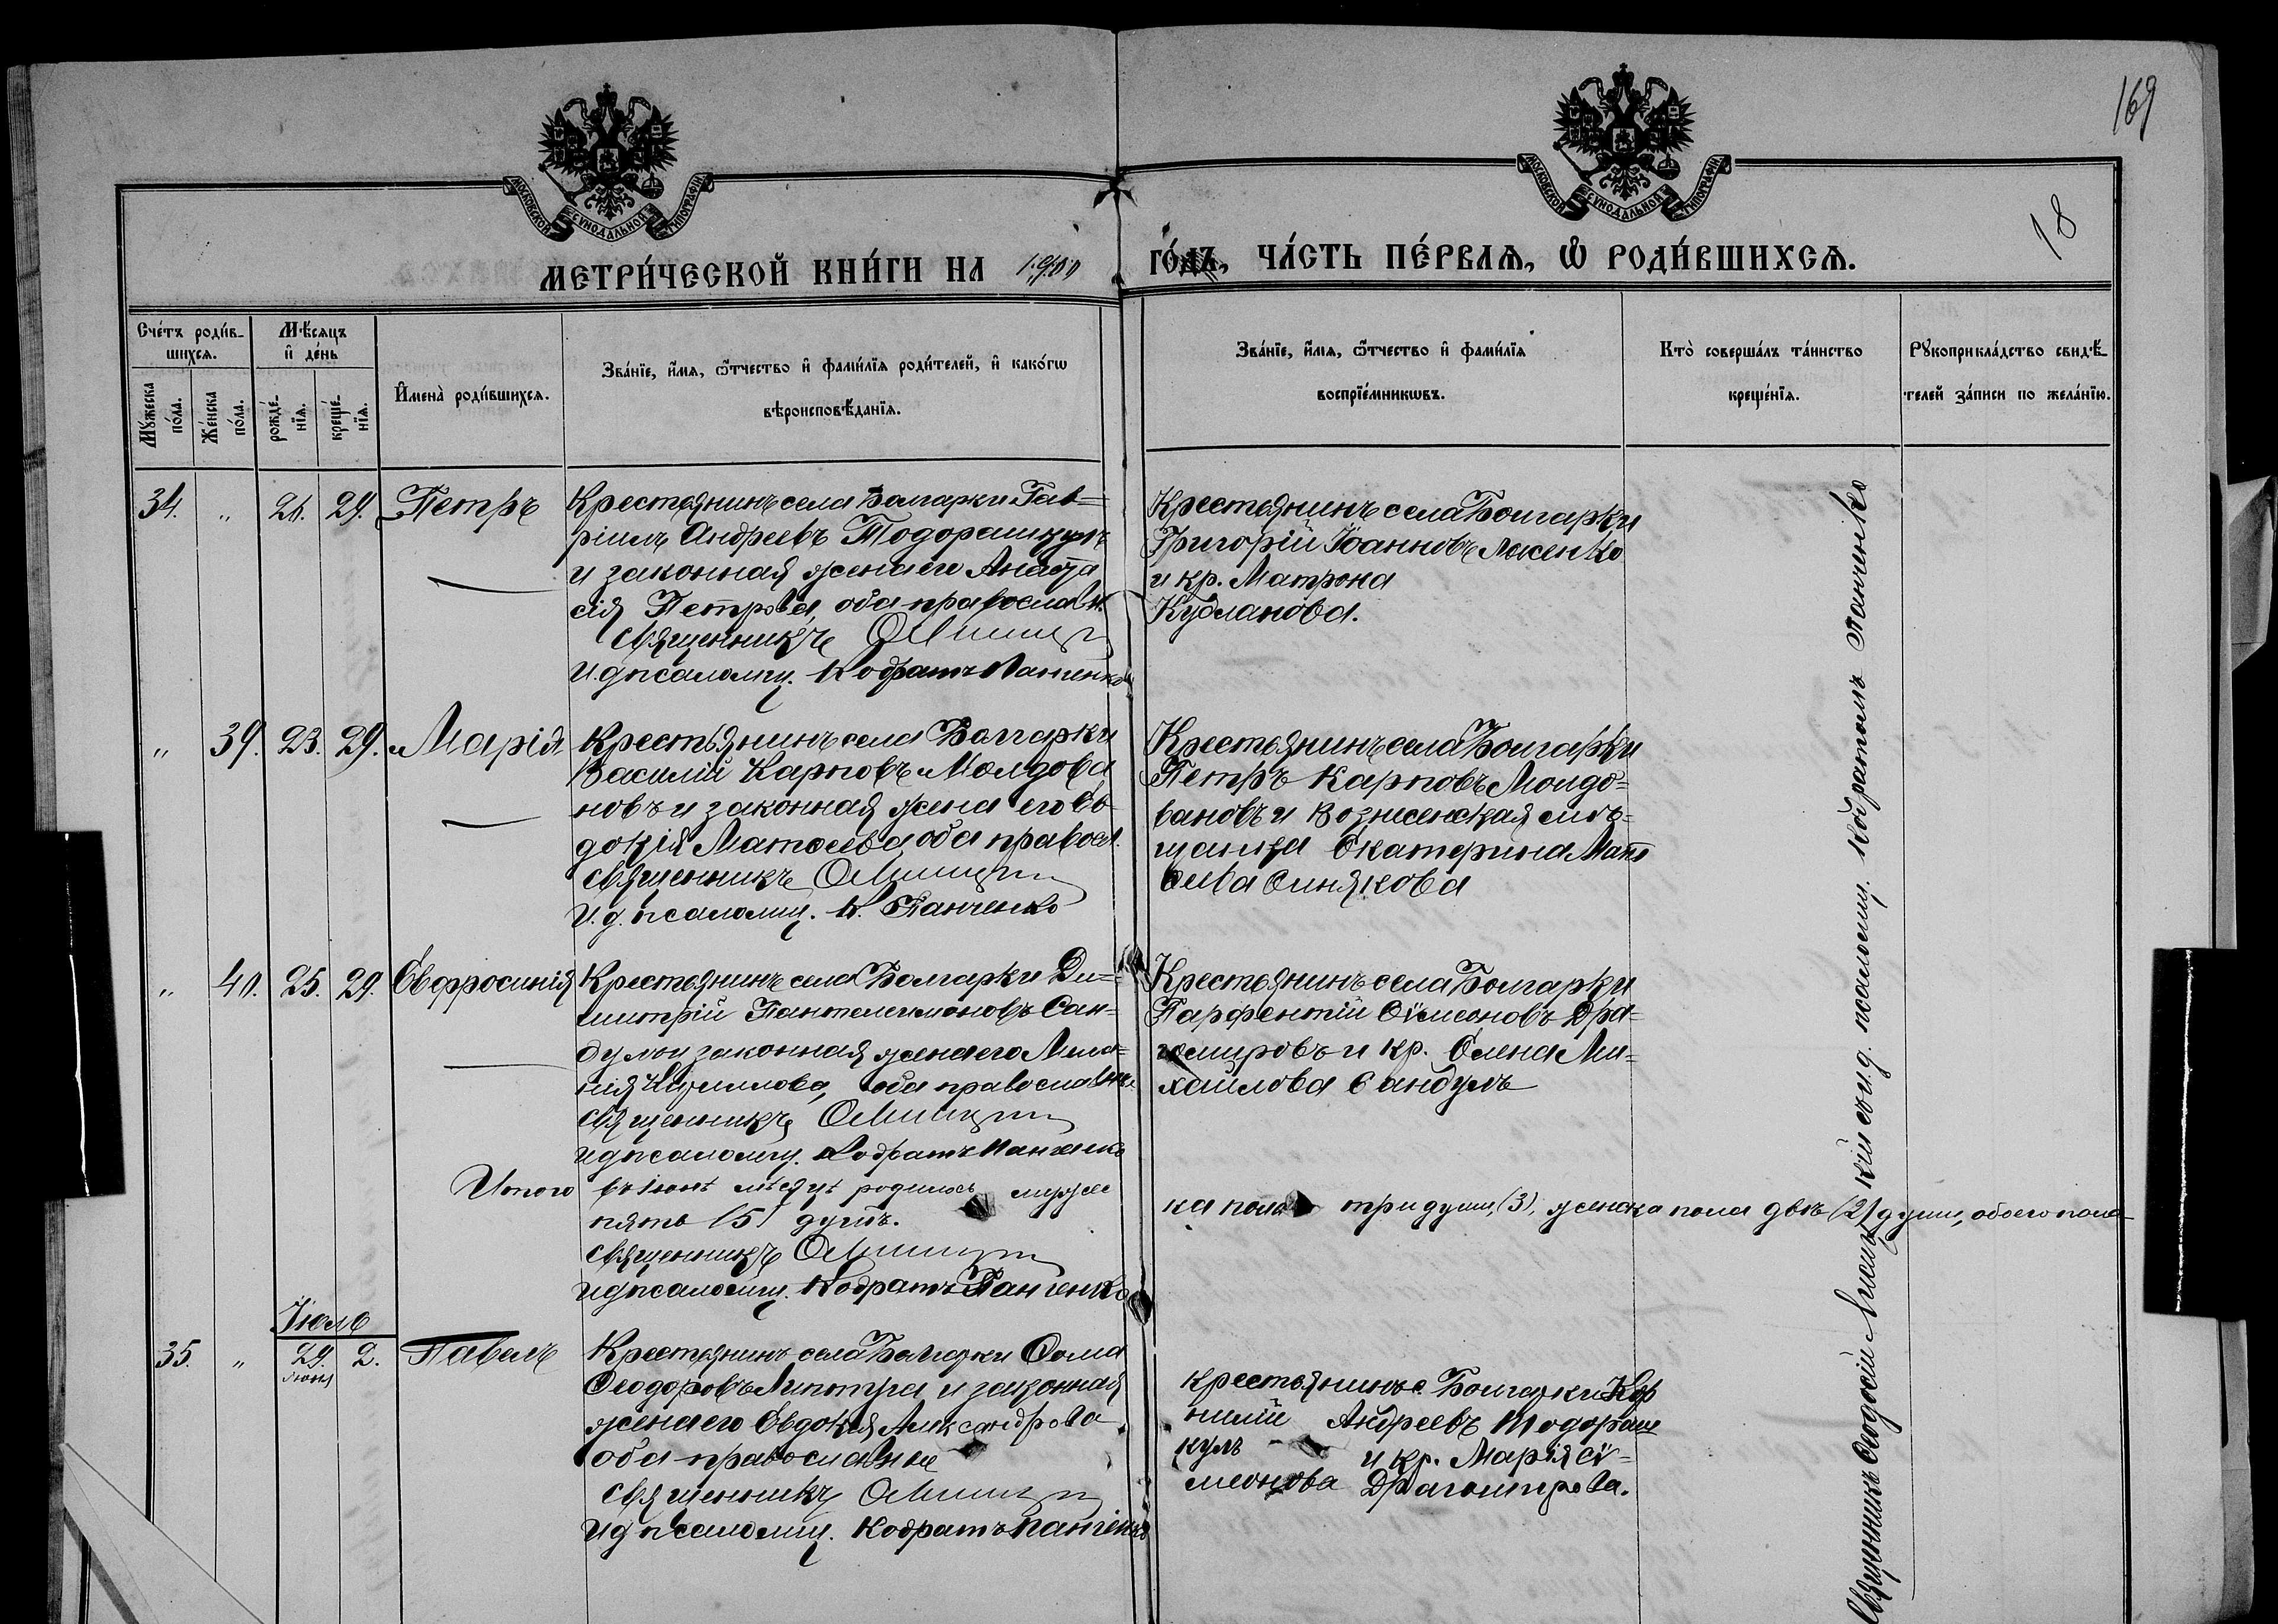 169
18
МОСКОВСКОЙ СѴНОДАЛЬНОЙ ТИПОГРАФІИ
МОСКОВСКОЙ СѴНОДАЛЬНОЙ ТИПОГРАФІИ
МЕТРИ́ЧЕСКОЙ КНИ́ГИ НА 1900
ГО́ДЪ, ЧА́СТЬ ПЕ́РВАѦ, Ѡ РОДИ́ВШИХСѦ.
Сче́тъ роди́в-
шихся.
Му́жеска по́ла.
Же́нска по́ла.
Мѣ́сяцъ
и де́нь
рожде́-
нїя.
креще́-
нїя.
Имена̀ роди́вшихся.
Зва́нїе, и́мя, ѻ҆́тчество и фами́лїя роди́телей, и како́гѡ
вѣроисповѣ́данїя.
Зва́нїе, и́мя, ѻ҆́тчество и фами́лїя
воспрїе́мникѡвъ.
Кто̀ соверша́лъ та́инство
креще́нїя.
Рукоприкла́дство свидѣ́-
телей за́писи по жела́нїю.
34. " 21. 29. Петръ
Крестьянинъ села Болгарки Гав=
ріилъ Андреевъ Тодорашкулъ
и законная жена его Анаста
сія Петрова, оба православн.
Священникъ
И.д. псаломщ. Кодратъ Панченко
Крестьянинъ села Болгарки
Григорій Іоанновъ
и кр. Матрона
Кудланова.
" 39. 23. 29. Марія
Крестьянинъ села Болгарки
Василій Карповъ Молдова
новъ и законная жена его Ев
докія Матѳеева оба правосл.
Священникъ
И.д. псаломщ. К. Панченко
Крестьянинъ села Болгарки
Петръ Карповъ Молдо=
вановъ и Вознесенская мѣ=
щанка Екатерина Матѳ
еева Синякова
" 40. 25. 29. Евфросинія
Крестьянинъ села Болгарки Ди=
митрій Пантелеимоновъ Сан=
дулъ и законная жена его Мела=
нія Кириллова, оба православные
Священникъ
И.д. псаломщ. Кодратъ Панченко
Крестьянинъ села Болгарки
Парфентій Сѵмеоновъ Дра=
гомировъ и кр. Елена Ми=
хайлова Сандулъ
Итого въ іюнѣ мѣсяцѣ родилось мужес
ка пола три души, (3), женска пола двѣ (2) души, обоего пола
пять (5) душъ.
Священникъ
И.д. псаломщ. Кодратъ Панченко
Іюль
35. " 29. 2. Павелъ
Іюня
Крестьянинъ села Болгарки Ѳома
Ѳеодоровъ Липтуга и законная
жена его Евдокія Александрова
оба православные
Священникъ
И.д. псаломщ. Кодратъ Панченко
крестьянинъ с. Болгарки Кор
нилій Андреевъ Тодораш
кулъ и кр. Марія Сѵ=
меонова Драгомирова.
Священникъ Ѳеодосій съ и.д. псаломщ. Кодратомъ Панченко